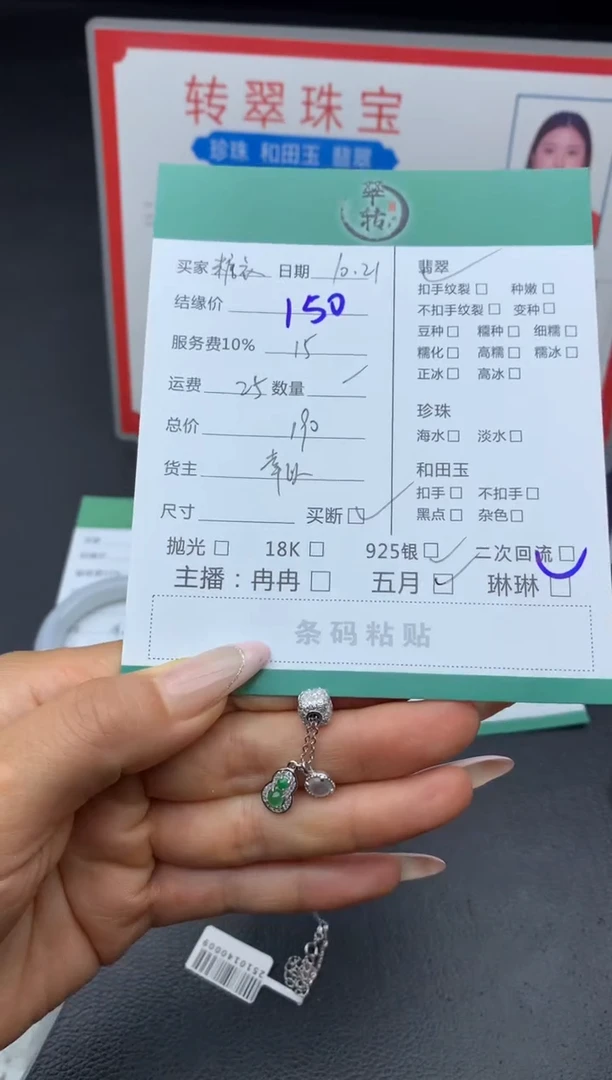 转翠珠宝
珍珠 和田玉 翡翠
翠
买家 糖衣 日期 10.21
结缘价 150
服务费10% 15
运费 25 数量
总价 190
货主
尺寸 买断
翡翠
扣手纹裂 种嫩
不扣手纹裂 变种
豆种 糯种 细糯
糯化 高糯 糯冰
正冰 高冰
珍珠
海水 淡水
和田玉
扣手 不扣手
黑点 杂色
抛光 18K 925银 二次回流
主播：冉冉 五月 琳琳
条码粘贴
2510140009